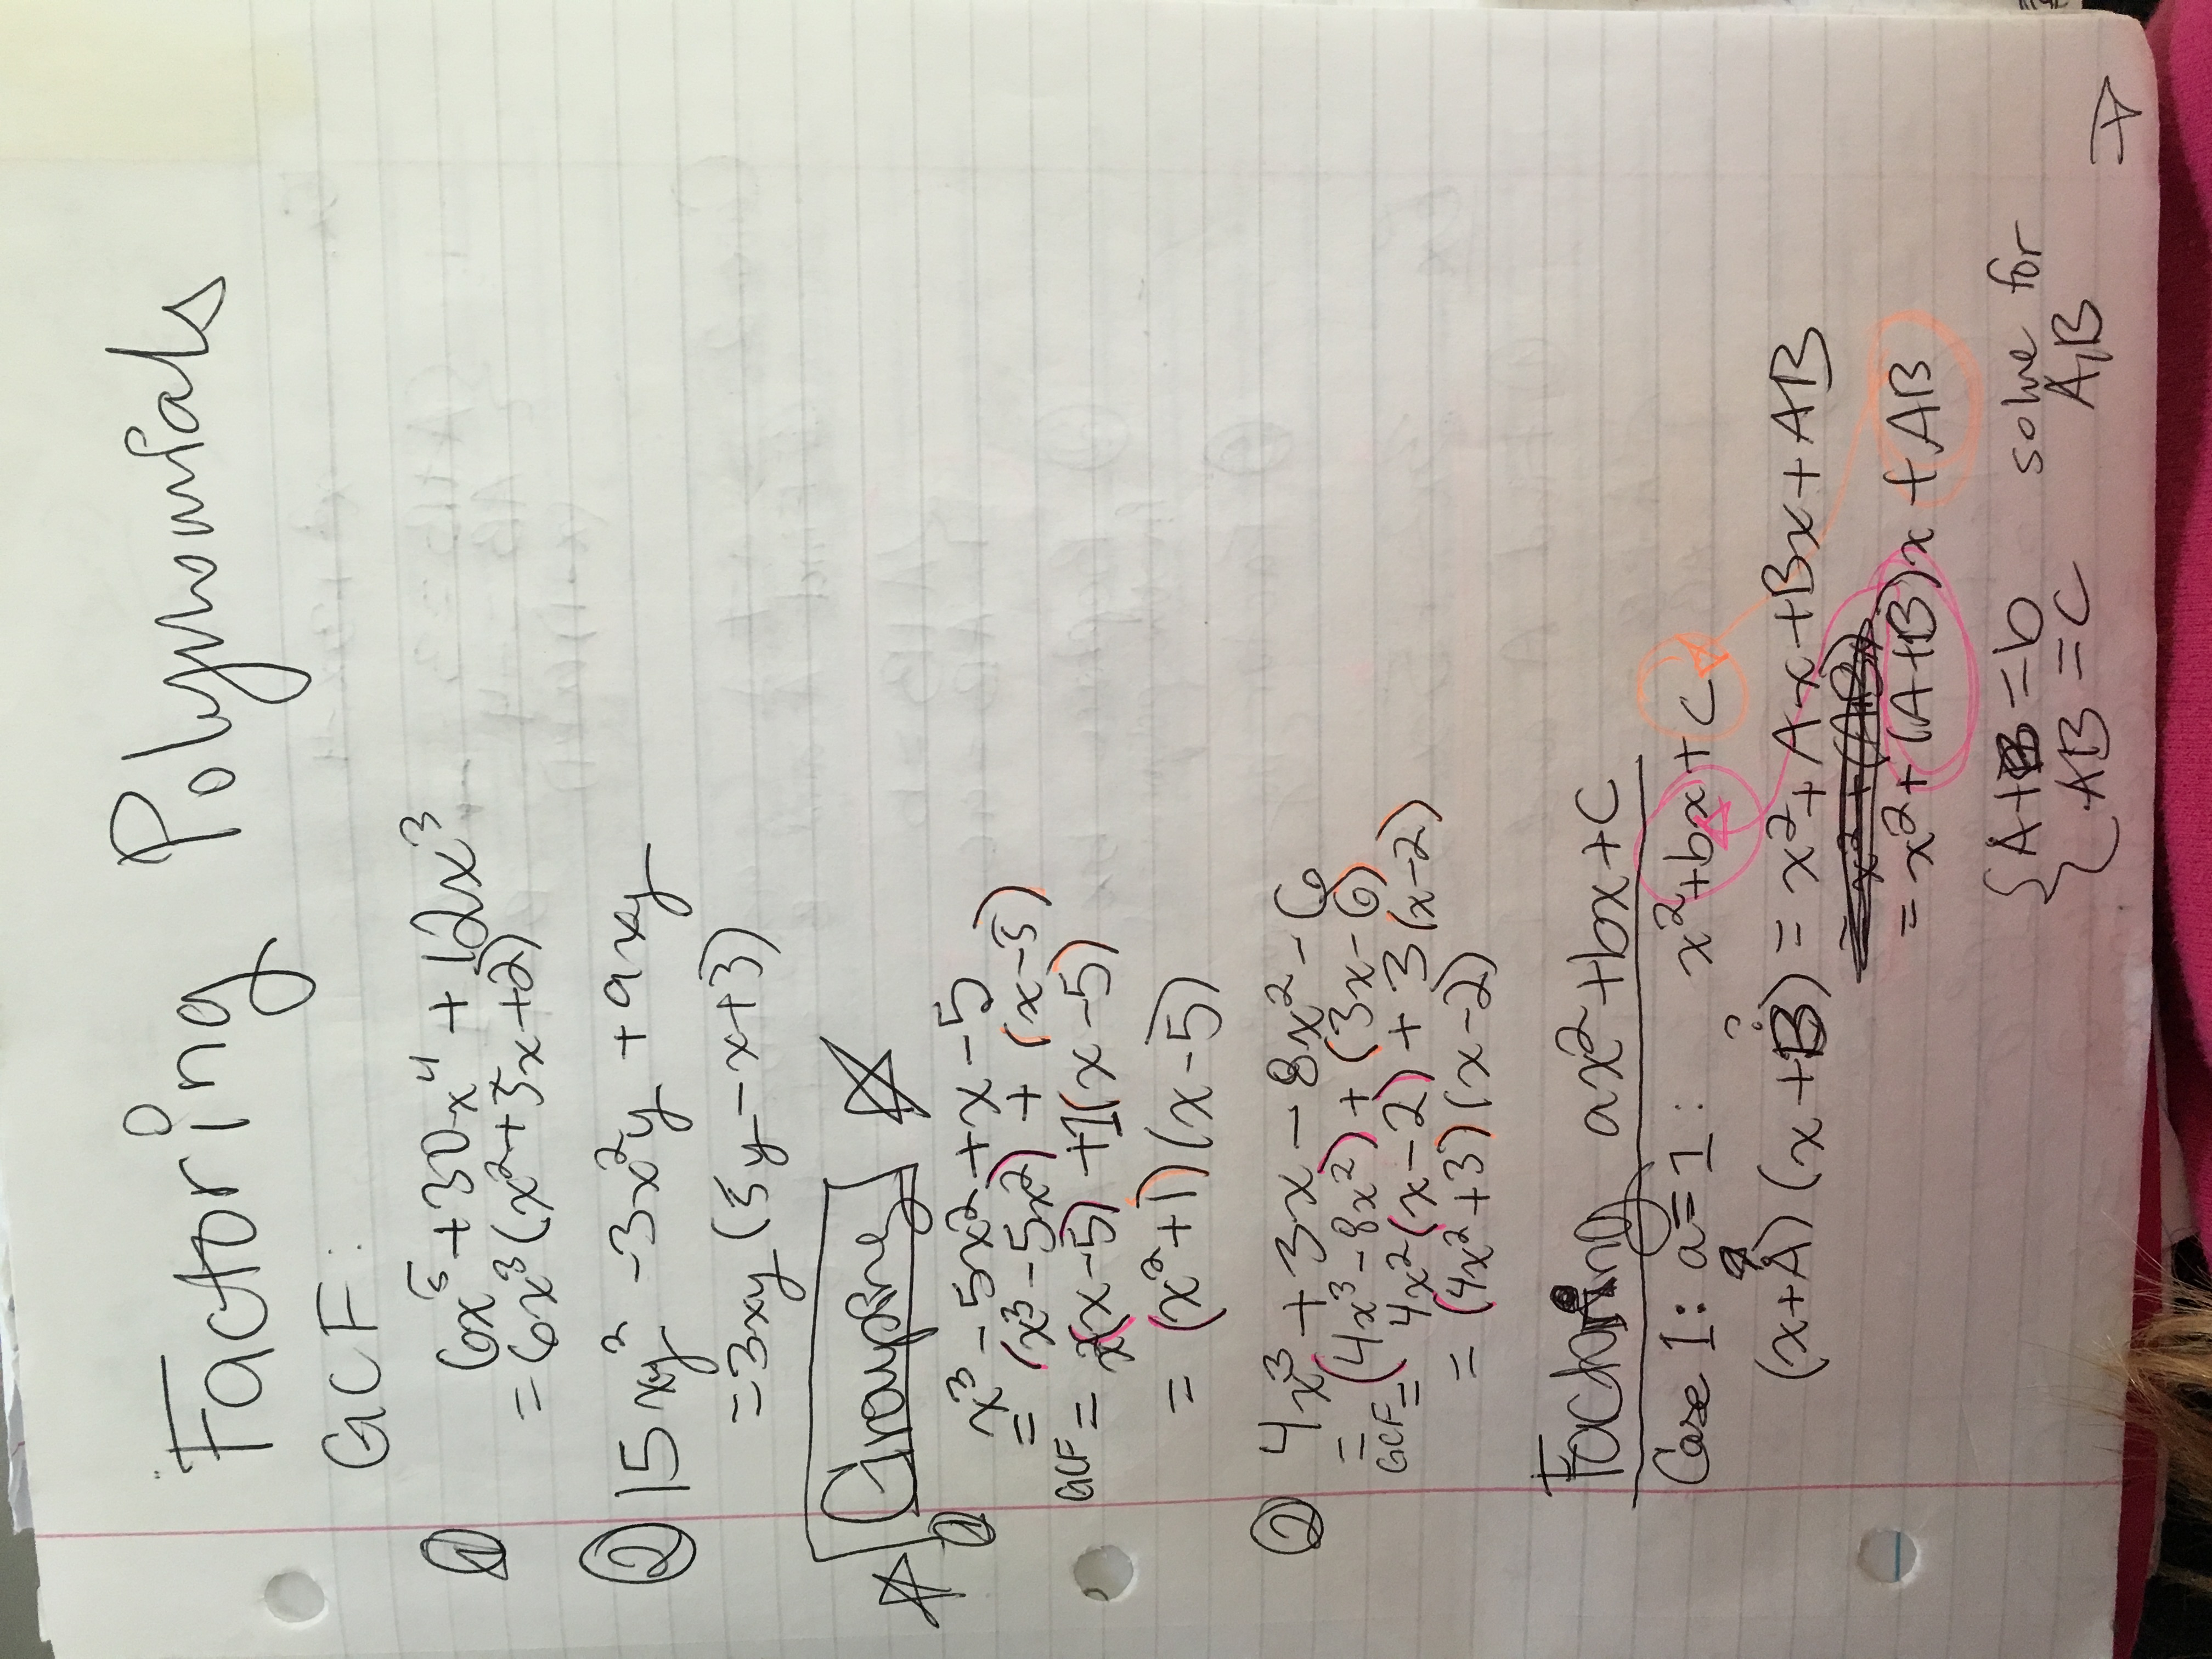 Factoring Polynomials
GCF:
① 6x⁵ + 30x⁴ + 12x³
= 6x³(x² + 5x + 2)
② 15xy² - 3x²y + 9xy
= 3xy(5y - x + 3)
☆ Grouping ☆
① x³ - 5x² + x - 5
= (x³ - 5x²) + (x - 5)
GCF = x(x - 5) + 1(x - 5)
= (x² + 1)(x - 5)
② 4x³ + 3x - 8x² - 6
= (4x³ - 8x²) + (3x - 6)
GCF = 4x²(x - 2) + 3(x - 2)
= (4x² + 3)(x - 2)
Factoring ax² + bx + C
Case 1: a = 1: x² + bx + C
(x + A)(x + B) = x² + Ax + Bx + AB
= x² + (A + B)x + AB
{ A + B = b solve for
AB = C A, B
→